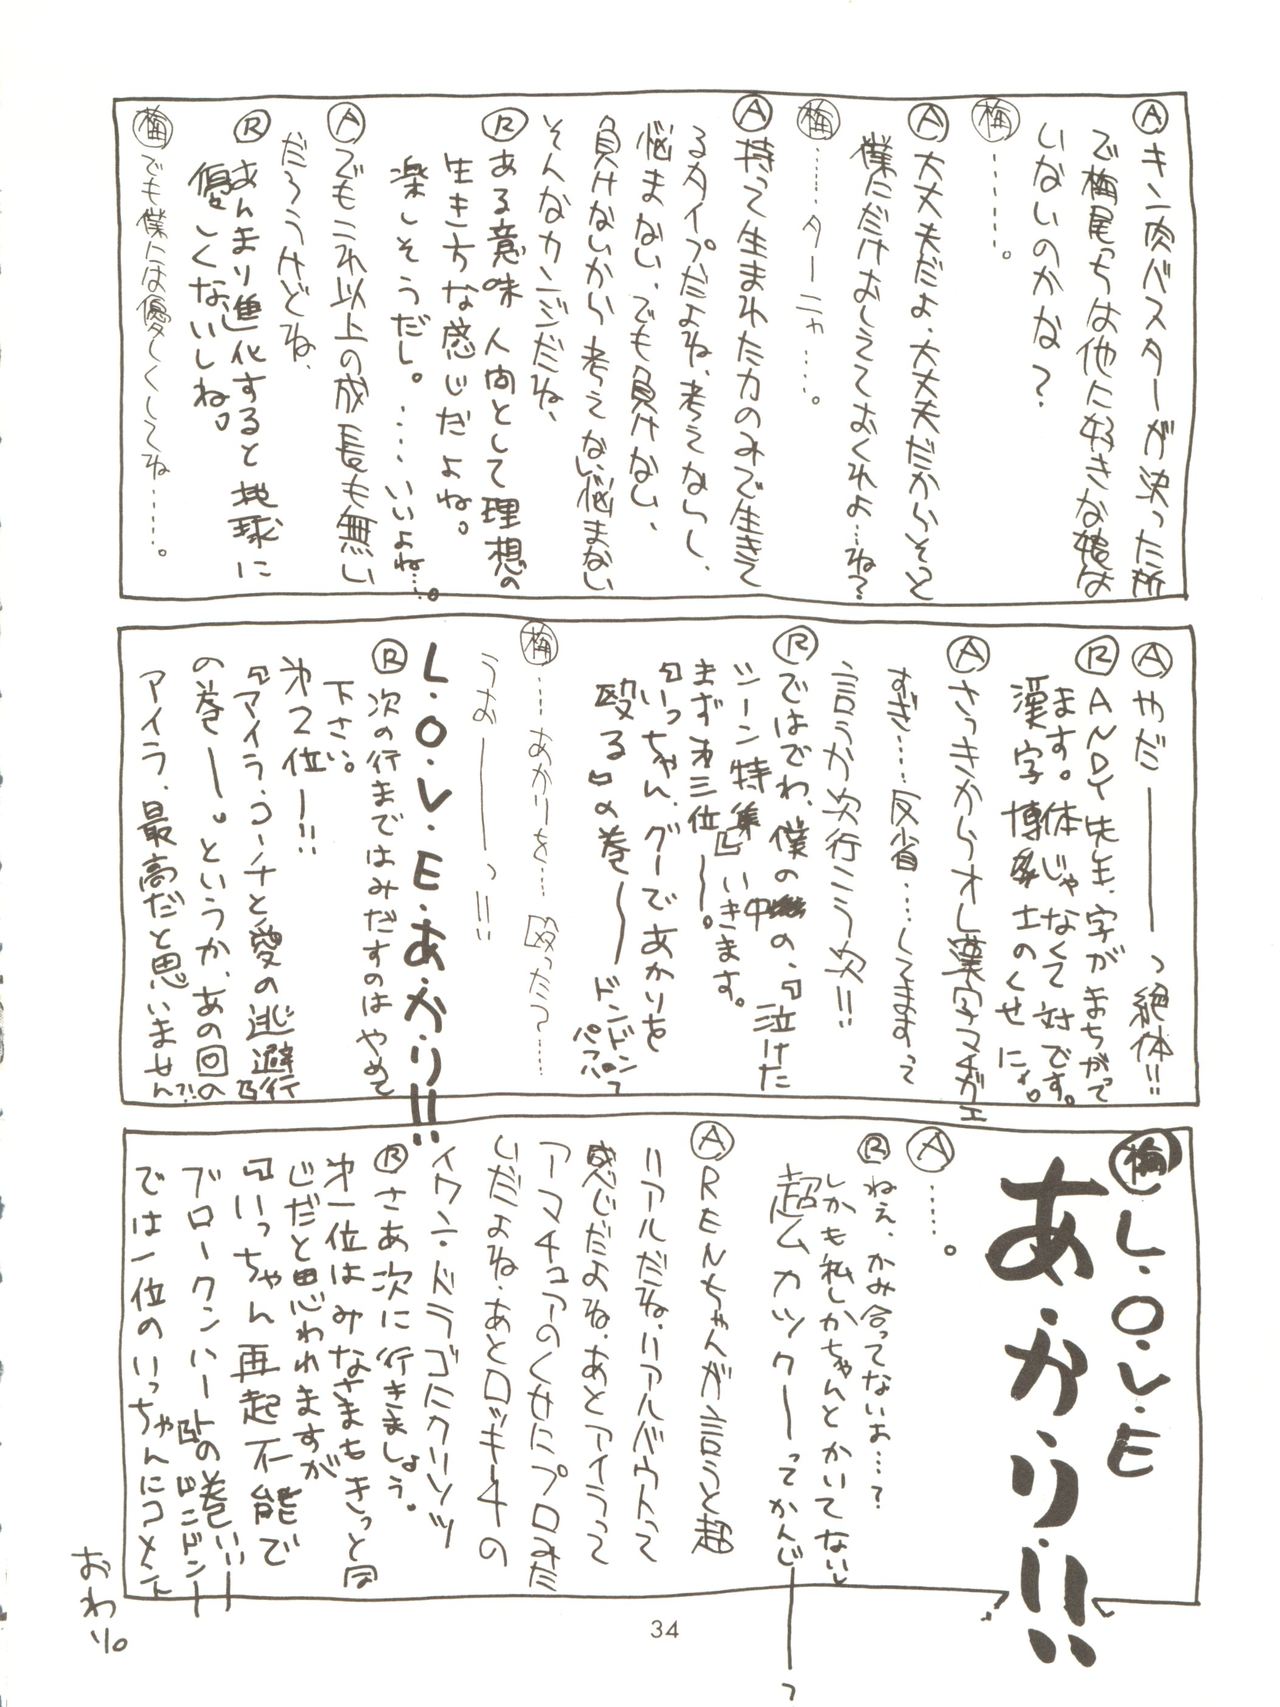 Ⓐキン肉バスターが決った所
で梅尾っちは他に好きな娘は
いないのかな?
梅……。
Ⓐ大丈夫だよ、大丈夫だからそっと
僕にだけおしえておくれよ…ね?
梅……ターニャ……。
Ⓐ持って生まれた力のみで生きて
るタイプだよね、考えないし、
悩まない、でも負けない、
負けないから考えない悩まない
そんなカンジだね、
Ⓡある意味人間として理想の
生き方な感じだよね。
楽しそうだし。……いいよね…。
Ⓐでもこれ以上の成長も無い
だろうけどね、
Ⓡあんまり進化すると地球に
優しくないしね。
梅でも僕には優しくしてね……。
Ⓐやだ――――っ絶体!!
ⓇANDY先生、字がまちがって
ます。体じゃなくて対です。
漢字博士のくせに。
Ⓐさっきからオレ漢字マチガエ
すぎ……反省……してますって
言うか次行こう次!!
Ⓡではでわ、僕の中の、『泣けた
シーン特集』いきます。
まずオ三位ー。
『いっちゃん、グーであかりを
殴る』の巻ー ドンドンっ
パフパフ
梅……あかりを……殴った?……
うお――――っ!!
L・O・V・E・あ・か・り!!
Ⓡ次の行まではみだすのはやめて
下さい。
オ2位ー!!
『アイラ、コーチと愛の逃避行』
の巻ー。というか、あの回の
アイラ、最高だと思いません?!
梅L・O・V・E
あ・か・り!!
Ⓐ……。
Ⓡねえ、かみ合ってないよ…?
しかも私しかちゃんとかいてないし
超ムカツクーってかんじ――っ
ⒶRENちゃんが言うと超
リアルだね、リアルバウトって
感じだよね、あとアイラって
アマチュアのくせにプロみた
いだよね、あとロッキー4の
イワン・ドラゴにクリソツ
Ⓡさあ次に行きましょう。
オ一位はみなさまもきっと同
じだと思われますが
『いっちゃん再起不能で
ブロークンハート』の巻ぃ!!
ドンドンー
では一位のいっちゃんにコメント
おわり。
34